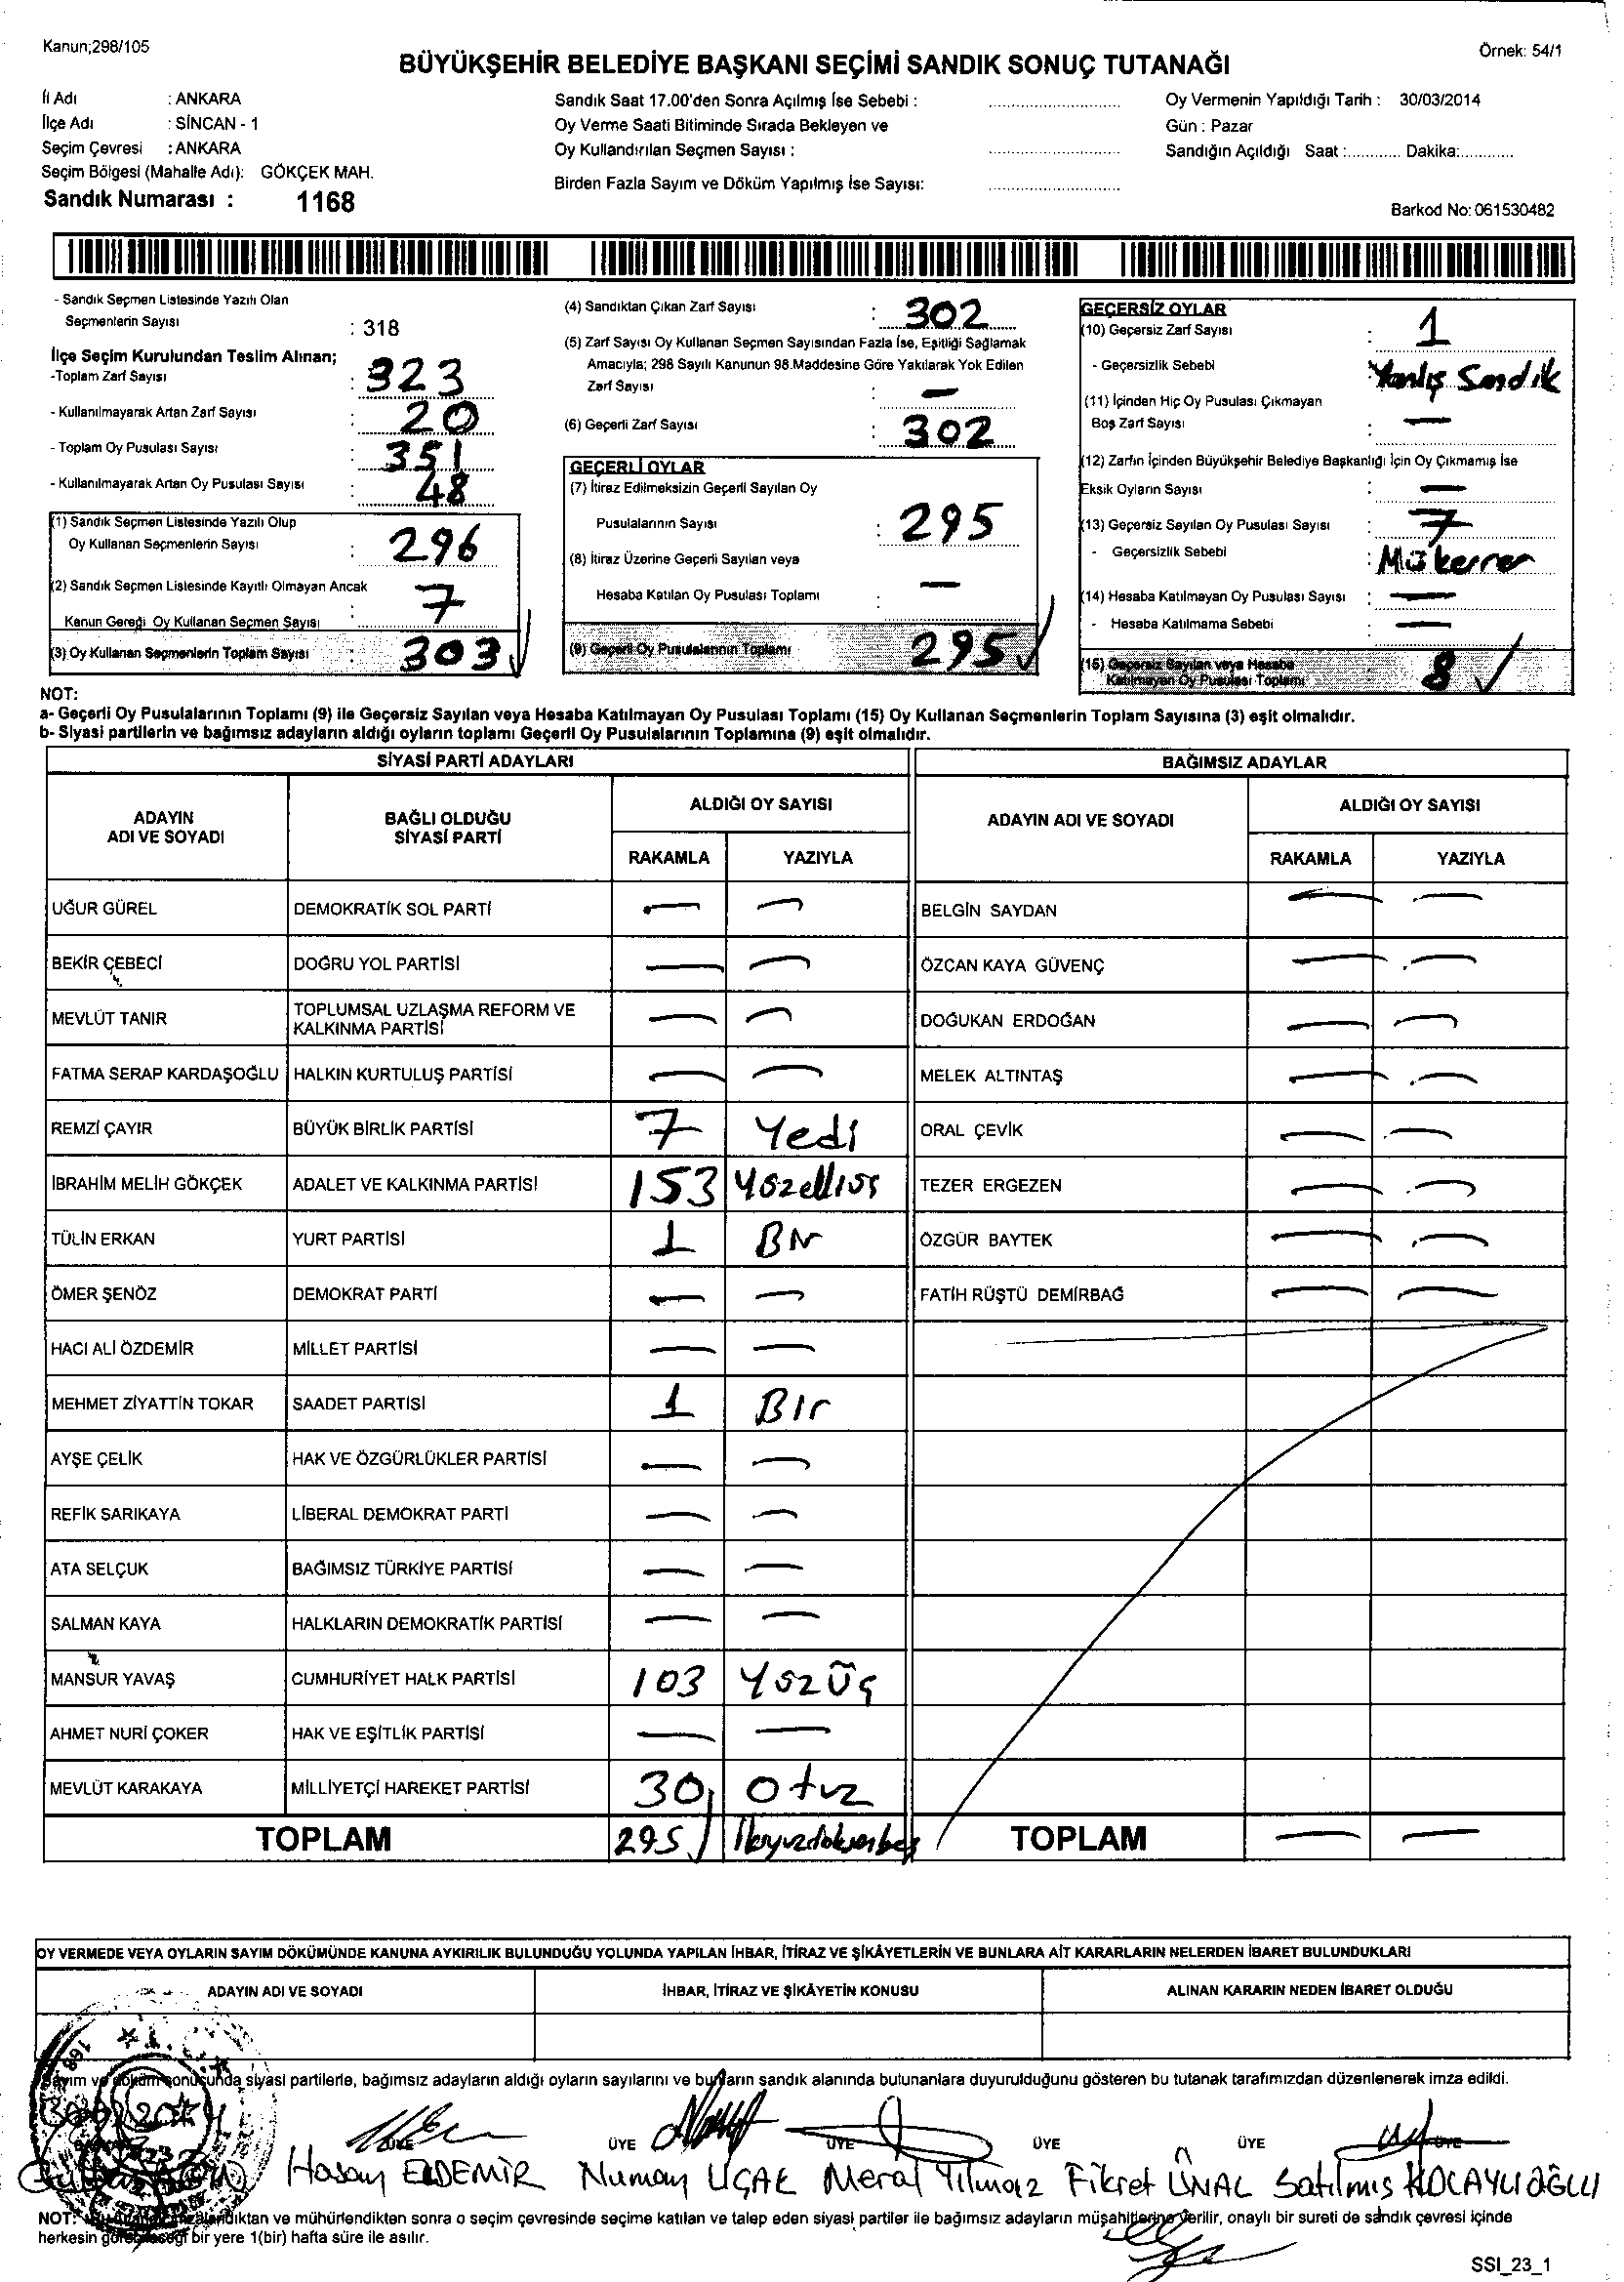 Kanun;298/105
Örnek: 54/1
BÜYÜKŞEHİR BELEDİYE BAŞKANI SEÇİMİ SANDIK SONUÇ TUTANAĞI
İl Adı : ANKARA
İlçe Adı : SİNCAN - 1
Seçim Çevresi : ANKARA
Seçim Bölgesi (Mahalle Adı): GÖKÇEK MAH.
Sandık Numarası : 1168
Sandık Saat 17.00'den Sonra Açılmış İse Sebebi :
Oy Verme Saati Bitiminde Sırada Bekleyen ve
Oy Kullandırılan Seçmen Sayısı :
Birden Fazla Sayım ve Döküm Yapılmış İse Sayısı:
Oy Vermenin Yapıldığı Tarih : 30/03/2014
Gün : Pazar
Sandığın Açıldığı Saat :............ Dakika:...........
Barkod No: 061530482
- Sandık Seçmen Listesinde Yazılı Olan
Seçmenlerin Sayısı : 318
İlçe Seçim Kurulundan Teslim Alınan;
-Toplam Zarf Sayısı : 323
- Kullanılmayarak Artan Zarf Sayısı : 20
- Toplam Oy Pusulası Sayısı : 351
- Kullanılmayarak Artan Oy Pusulası Sayısı : 48
(1) Sandık Seçmen Listesinde Yazılı Olup
Oy Kullanan Seçmenlerin Sayısı : 296
(2) Sandık Seçmen Listesinde Kayıtlı Olmayan Ancak
Kanun Gereği Oy Kullanan Seçmen Sayısı : 7
(3) Oy Kullanan Seçmenlerin Toplam Sayısı : 303
(4) Sandıktan Çıkan Zarf Sayısı : 302
(5) Zarf Sayısı Oy Kullanan Seçmen Sayısından Fazla İse, Eşitliği Sağlamak
Amacıyla; 298 Sayılı Kanunun 98.Maddesine Göre Yakılarak Yok Edilen
Zarf Sayısı : —
(6) Geçerli Zarf Sayısı : 302
GEÇERLİ OYLAR
(7) İtiraz Edilmeksizin Geçerli Sayılan Oy
Pusulalarının Sayısı : 295
(8) İtiraz Üzerine Geçerli Sayılan veya
Hesaba Katılan Oy Pusulası Toplamı : —
(9) Geçerli Oy Pusulalarının Toplamı 295
GEÇERSİZ OYLAR
(10) Geçersiz Zarf Sayısı : 1
- Geçersizlik Sebebi : Yanlış Sandık
(11) İçinden Hiç Oy Pusulası Çıkmayan
Boş Zarf Sayısı : —
(12) Zarfın İçinden Büyükşehir Belediye Başkanlığı İçin Oy Çıkmamış İse
Eksik Oyların Sayısı : —
(13) Geçersiz Sayılan Oy Pusulası Sayısı : 7
- Geçersizlik Sebebi : Mükerrer
(14) Hesaba Katılmayan Oy Pusulası Sayısı : —
- Hesaba Katılmama Sebebi : —
(15) Geçersiz Sayılan veya Hesaba
Katılmayan Oy Pusulası Toplamı 8
NOT:
a- Geçerli Oy Pusulalarının Toplamı (9) ile Geçersiz Sayılan veya Hesaba Katılmayan Oy Pusulası Toplamı (15) Oy Kullanan Seçmenlerin Toplam Sayısına (3) eşit olmalıdır.
b- Siyasi partilerin ve bağımsız adayların aldığı oyların toplamı Geçerli Oy Pusulalarının Toplamına (9) eşit olmalıdır.
SİYASİ PARTİ ADAYLARI
ADAYIN ADI VE SOYADI BAĞLI OLDUĞU SİYASİ PARTİ ALDIĞI OY SAYISI
RAKAMLA YAZIYLA
UĞUR GÜREL DEMOKRATİK SOL PARTİ — —
BEKİR ÇEBECİ DOĞRU YOL PARTİSİ — —
MEVLÜT TANIR TOPLUMSAL UZLAŞMA REFORM VE KALKINMA PARTİSİ — —
FATMA SERAP KARDAŞOĞLU HALKIN KURTULUŞ PARTİSİ — —
REMZİ ÇAYIR BÜYÜK BİRLİK PARTİSİ 7 Yedi
İBRAHİM MELİH GÖKÇEK ADALET VE KALKINMA PARTİSİ 153
TÜLİN ERKAN YURT PARTİSİ 1 Bir
ÖMER ŞENÖZ DEMOKRAT PARTİ — —
HACI ALİ ÖZDEMİR MİLLET PARTİSİ — —
MEHMET ZİYATTİN TOKAR SAADET PARTİSİ 1 Bir
AYŞE ÇELİK HAK VE ÖZGÜRLÜKLER PARTİSİ — —
REFİK SARIKAYA LİBERAL DEMOKRAT PARTİ — —
ATA SELÇUK BAĞIMSIZ TÜRKİYE PARTİSİ — —
SALMAN KAYA HALKLARIN DEMOKRATİK PARTİSİ — —
MANSUR YAVAŞ CUMHURİYET HALK PARTİSİ 103 Yüz Üç
AHMET NURİ ÇOKER HAK VE EŞİTLİK PARTİSİ — —
MEVLÜT KARAKAYA MİLLİYETÇİ HAREKET PARTİSİ 30 Otuz
TOPLAM 295 İkiyüzdoksanbeş
BAĞIMSIZ ADAYLAR
ADAYIN ADI VE SOYADI ALDIĞI OY SAYISI
RAKAMLA YAZIYLA
BELGİN SAYDAN — —
ÖZCAN KAYA GÜVENÇ — —
DOĞUKAN ERDOĞAN — —
MELEK ALTINTAŞ — —
ORAL ÇEVİK — —
TEZER ERGEZEN — —
ÖZGÜR BAYTEK — —
FATİH RÜŞTÜ DEMİRBAĞ — —
TOPLAM — —
OY VERMEDE VEYA OYLARIN SAYIM DÖKÜMÜNDE KANUNA AYKIRILIK BULUNDUĞU YOLUNDA YAPILAN İHBAR, İTİRAZ VE ŞİKÂYETLERİN VE BUNLARA AİT KARARLARIN NELERDEN İBARET BULUNDUKLARI
ADAYIN ADI VE SOYADI İHBAR, İTİRAZ VE ŞİKÂYETİN KONUSU ALINAN KARARIN NEDEN İBARET OLDUĞU
Sayım ve döküm sonucunda siyasi partilerle, bağımsız adayların aldığı oyların sayılarını ve bunların sandık alanında bulunanlara duyurulduğunu gösteren bu tutanak tarafımızdan düzenlenerek imza edildi.
ÜYE ÜYE ÜYE ÜYE ÜYE
Hasan ELDEMİR Numan UÇAK Meral Yılmaz Fikret ÜNAL Satılmış KOLAYLIOĞLU
NOT: ve mühürlendikten sonra o seçim çevresinde seçime katılan ve talep eden siyasi partiler ile bağımsız adayların müşahitlerine verilir, onaylı bir sureti de sandık çevresi içinde
herkesin görebileceği bir yere 1(bir) hafta süre ile asılır.
SSI_23_1